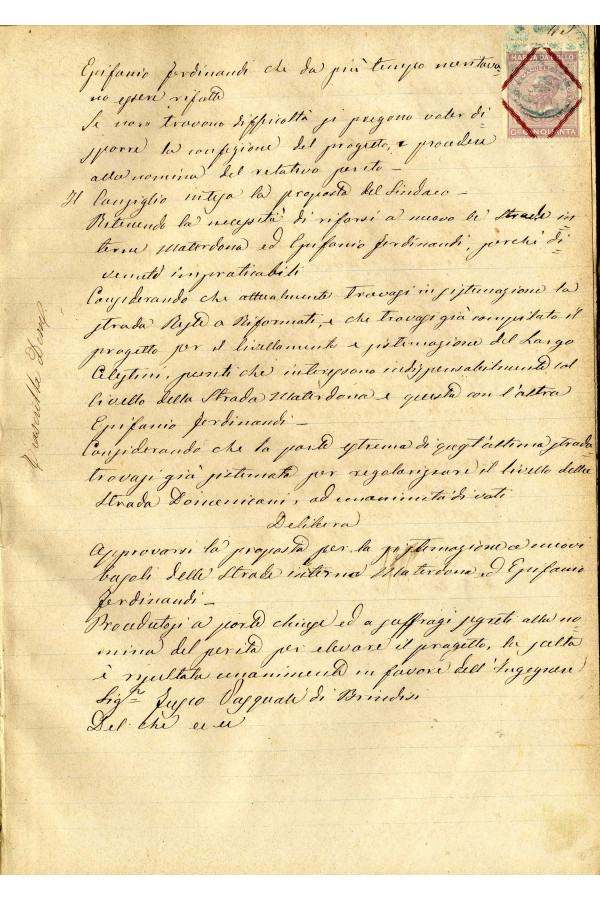 MARCA DA BOLLO
C. CINQUANTA
Epifanio Ferdinandi che da più tempo meritava
no essere rifatte
Se non trovano difficoltà si pregono voler di=
sporre la confezione del progetto, e procedere
alla nomina del relativo perito_
Il Consiglio intesa la proposta del Sindaco_
Ritenendo la necessità di rifarsi a nuovo le strade in=
terne Materdona ed Epifanio Ferdinandi, perchè di=
venute impraticabili
Considerando che attualmente trovasi in sistemazione la
strada Riformati, e che trovasi già compilato il
progetto per il livellamento e sistemazione del Largo
Celestini, punti che interessono indispensabilmente col
livello della Strada Materdona e questa con l'altra
Epifanio Ferdinandi_
Considerando che la parte estrema di quest'ultima strada
trovasi già sistemata per regolarizzare il livello della
strada Domenicani, ad unanimità di voti
Delibera
Approvarsi la proposta per la sistemazione a nuovi
basoli delle strade interne Materdona ed Epifanio
Ferdinandi_
Procedutosi a porte chiuse ed a suffragi segreti alla no=
mina del perito per elevare il progetto, la scelta
è risultata unanimente in favore dell'Ingegnere
Sig.r Fusco Pasquale di Brindisi
Del che